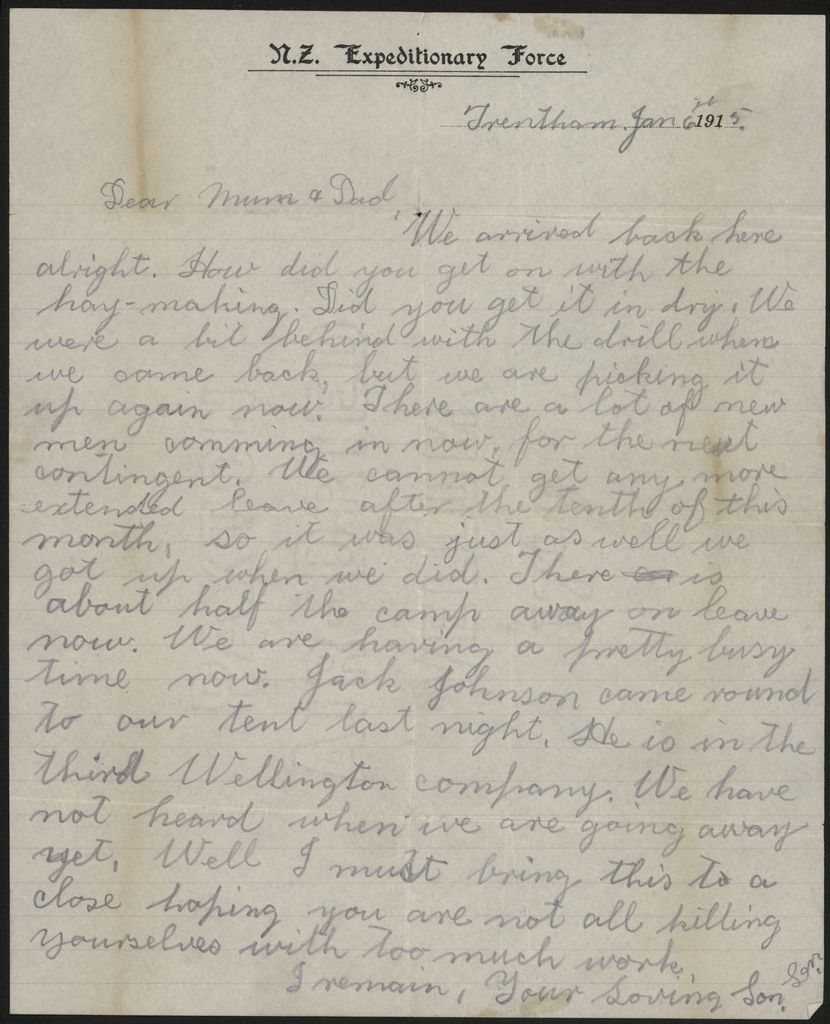 N.Z. Expeditionary Force
Trentham. Jan 6 1915.
Dear Mum & Dad,
We arrived back here
alright. How did you get on with the
hay-making. Did you get it in dry. We
were a bit behind with the drill when
we came back, but we are picking it
up again now. There are a lot of new
men comming in now, for the next
contingent. We cannot get any more
extended leave after the tenth of this
month, so it was just as well we
got up when we did. There is
about half the camp away on leave
now. We are having a pretty busy
time now. Jack Johnson came round
to our tent last night. He is in the
third Wellington company. We have
not heard when we are going away
yet. Well I must bring this to a
close hoping you are not all killing
yourselves with too much work.
I remain, Your Loving Son.